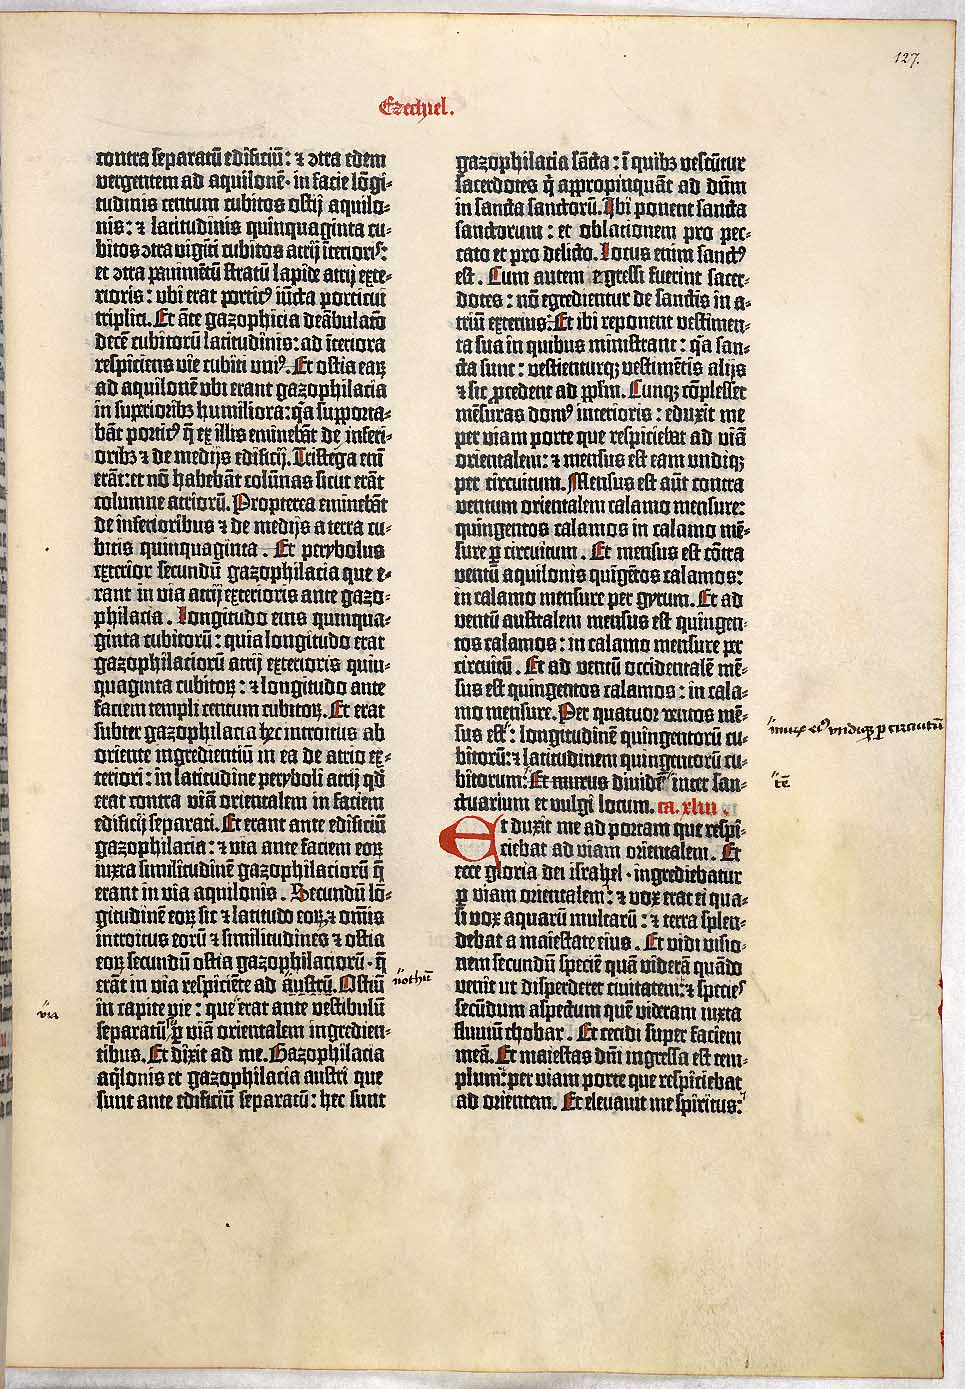 127.
Ezechiel.
contra separatū edificiū: ⁊ ꝯtra edem
vergentem ad aquilonē· in facie lōgi-
tudinis centum cubitos ostij aquilo-
nis: ⁊ latitudinis quinquaginta cu-
bitos ꝯtra viginti cubitos atrij īterioris:
et ꝯtra pauimētū stratū lapide atrij exte-
rioris: ubi erat porticꝰ iūcta porticui
triplici. Et āte gazophicia deābulatō
decē cubitorū latitudinis: ad īteriora
respiciens vie cubiti uniꝰ. Et ostia eaꝝ
ad aquilonē ubi erant gazophilacia
in supīoribꝫ humiliora: q̄a supporta-
bāt porticꝰ q̄ ex illis eminebāt de inferi-
oribꝫ ⁊ de medijs edificij. Tristega enī
erāt: et nō habebāt colūnas sicut erāt
columne atriorū. Propterea eminebāt
de inferioribus ⁊ de medijs a terra cu-
bitis quinquaginta. Et peribolus
exterior secundū gazophilacia que e-
rant in via atrij exterioris ante gazo-
philacia. Longitudo eius quinqua-
ginta cubitorū: quia longitudo erat
gazophilaciorū atrij exterioris quin-
quaginta cubitoꝝ: ⁊ longitudo ante
faciem templi centum cubitoꝝ. Et erat
subter gazophilacia hec introitus ab
oriente ingredientiū in ea de atrio ex-
teriori: in latitudine periboli atrij qd̄
erat contra viā orientalem in faciem
edificij separati. Et erant ante edificiū
gazophilacia: ⁊ via ante faciem eoꝝ
iuxta similitudinē gazophilaciorū q̄
erant in via aquilonis. Secundū lō-
gitudinē eoꝝ sic ⁊ latitudo eoꝝ ⁊ om̄is
introitus eorū ⁊ similitudines ⁊ ostia
eoꝝ secundū ostia gazophilaciorū· q̄
erāt in via respiciēte ad austrū. Ostiū
nothū
in capite vie: que erat ante vestibulū
via
separatū ꝑ viā orientalem ingredien-
tibus. Et dixit ad me. Gazophilacia
aq̇lonis et gazophilacia austri que
sunt ante edificiū separatū: hec sunt
gazophilacia sācta: ī quibꝫ vescūtur
sacerdotes q̇ appropinquāt ad dn̄m
in sancta sanctorū. Ibi ponent sancta
sanctorum: et oblationem pro pec-
cato et pro delicto. Locus enim sanctꝰ
est. Cum autem egressi fuerint sacer-
dotes: nō egredientur de sanctis in a-
triū exterius. Et ibi reponent vestimen-
ta sua in quibus ministrant: q̄a san-
cta sunt: vestienturqꝫ vestimētis alijs
⁊ sic ꝓcedent ad pp̄lm. Cunqꝫ cōplesset
mēsuras domꝰ interioris: eduxit me
per viam porte que respiciebat ad viā
orientalem: ⁊ mensus est eam undiqꝫ
per circuitum. Mensus est aūt contra
ventum orientalem calamo mensure:
quīngentos calamos in calamo mē-
sure ꝑ circuitum. Et mensus est cōtra
ventū aquilonis quīgētos calamos:
in calamo mensure per gyrum. Et ad
ventū australem mensus est quingen-
tos calamos: in calamo mensure per
circuitū. Et ad ventū occidentalē mē-
sus est quingentos calamos: in cala-
mo mensure. Per quatuor ventos mē-
sus est: longitudinē quingentorū cu-
undiqꝫ ꝑ circuitū
bitorū: ⁊ latitudinem quingentorū cu-
bitorum. Et murus diuidēs inter san-
tē
ctuarium et vulgi locum. ca. xliii.
Et duxit me ad portam que respi-
ciebat ad viam orientalem. Et
ecce gloria dei israhel· ingrediebatur
ꝑ viam orientalem: ⁊ vox erat ei qua-
si vox aquarū multarū: ⁊ terra splen-
debat a maiestate eius. Et vidi visio-
nem secundū speciē quā viderā quādo
venit ut disperderet ciuitatem: ⁊ species
secūdum aspectum quē videram iuxta
fluuiū chobar. Et cecidi super faciem
meā. Et maiestas dn̄i ingressa est tem-
plum: per viam porte que respiciebat
ad orientem. Et eleuauit me spiritus: